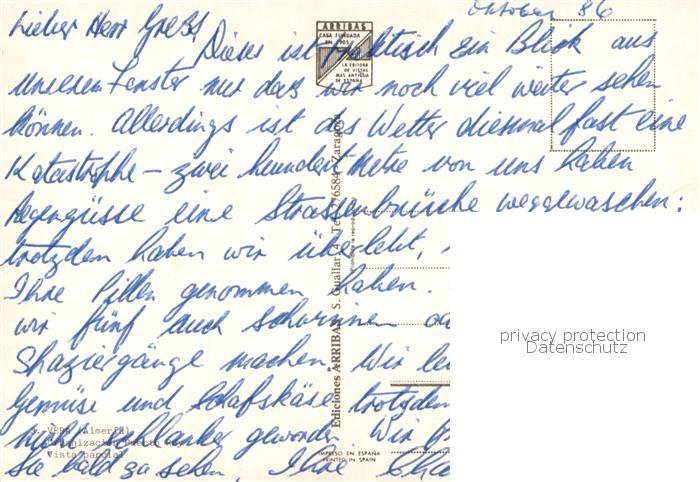 Oktober 86
Lieber Herr Gress,
Dieses ist praktisch ein Blick aus
unserem Fenster nur dass wir noch viel weiter sehen
können. Allerdings ist das Wetter diesmal fast eine
Katastrophe - zwei hundert Metre von uns haben
Regengüsse eine Strassenbrücke weggewaschen:
trotzdem haben wir überlebt,
Ihre Pillen genommen haben.
wir fünf auch schwimmen
Spaziergänge machen. Wir
Gemüse und Schafskäse trotzdem
schlanker geworden. Wir
Sie bald zu sehen, Ihre
ARRIBAS
CASA FUNDADA
EN 1905
LA EDITORA
DE VISTAS
MAS ANTIGUA
DE ESPAÑA
Ediciones ARRIBAS - S. Guallar, 4 - Zaragoza
VERA (Almería)
Urbanización Puerto Rey
Vista parcial
IMPRESO EN ESPAÑA
PRINTED IN SPAIN
privacy protection
Datenschutz